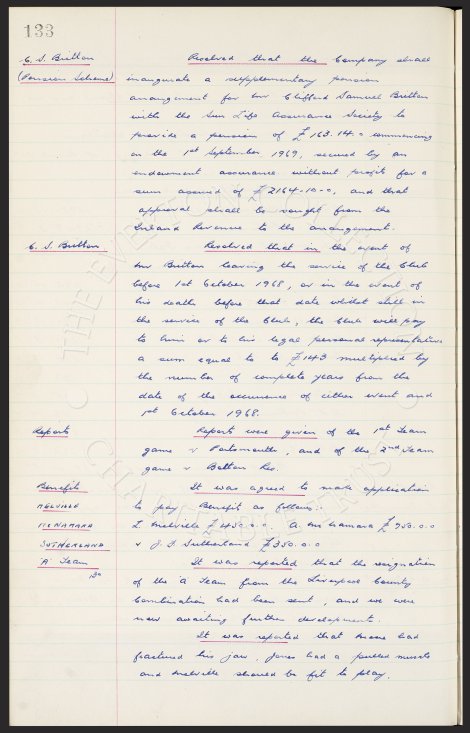 133
C. S. Britton
(Pension Scheme)
Resolved that the Company shall
inaugurate a supplementary pension
arrangement for Mr Clifford Samuel Britton
with the Sun Life Assurance Society to
provide a pension of £163.14.0 commencing
on the 1st September 1969, secured by an
endowment assurance without profit for a
sum assured of £2164-10-0, and that
approval shall be sought from the
Inland Revenue to the arrangement.
C. S. Britton
Resolved that in the event of
Mr Britton leaving the service of the Club
before 1st October 1968, or in the event of
his death before that date whilst still in
the service of the Club, the Club will pay
to him or to his legal personal representative
a sum equal to to £143 multiplied by
the number of complete years from the
date of the occurrence of either event and
1st October 1968.
Reports
Reports were given of the 1st Team
game v Portsmouth, and of the 2nd Team
game v Bolton Res.
Benefits
It was agreed to make application
to pay Benefit as follows:-
MELVILLE
McNAMARA
SUTHERLAND
L Melville £450.0.0. A. McNamara £750.0.0
v J. F. Sutherland £350.0.0
'A' Team
It was reported that the resignation
of the 'A' Team from the Liverpool County
Combination had been sent, and we were
now awaiting further developments.
It was reported that Meane had
fractured his jaw, Jones had a pulled muscle
and Melville should be fit to play.
THE EVERTON
CHARITABLE TRUST